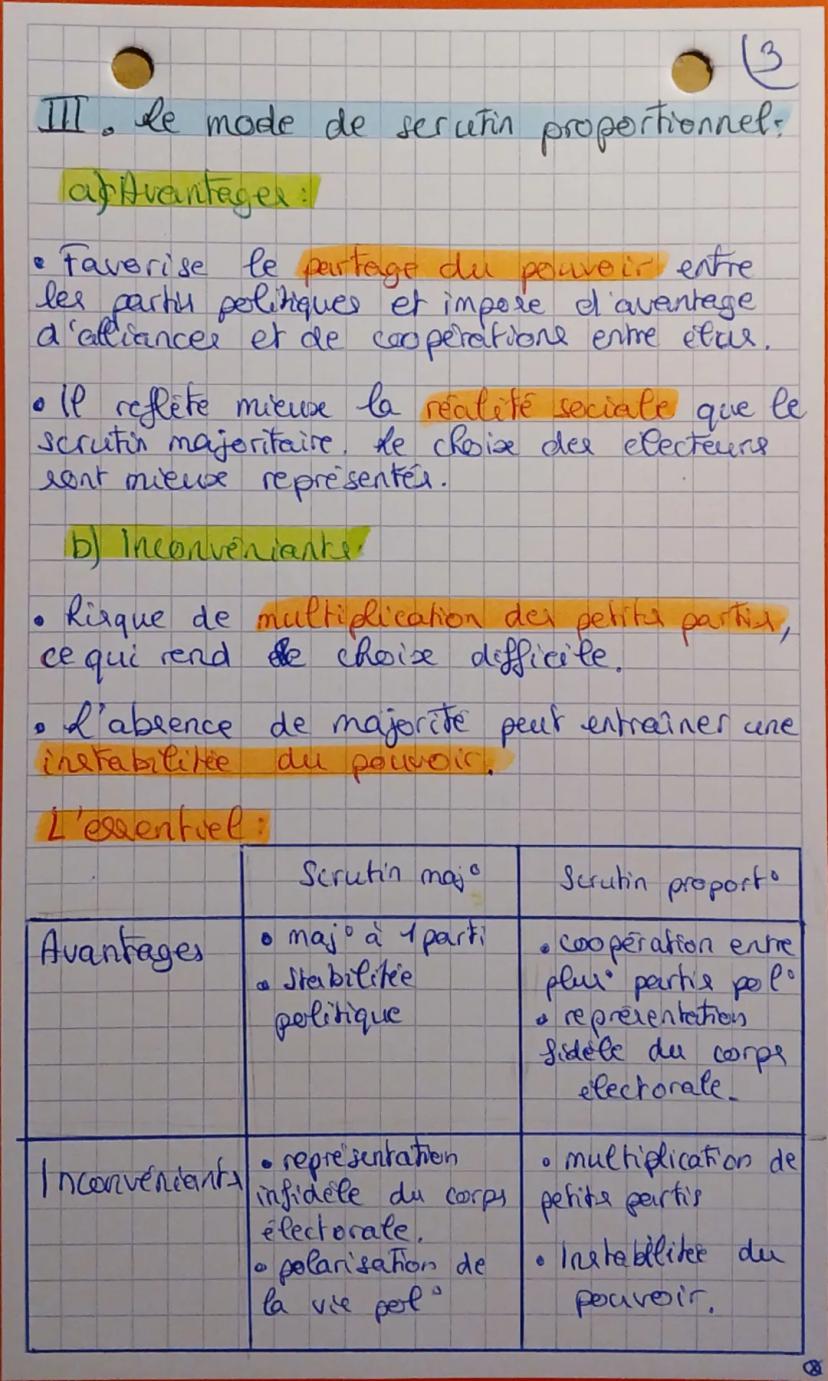 3
III. Le mode de scrutin proportionnel:
a) Avantages:
• Favorise le partage du pouvoir entre
les partis politiques et impose d'avantage
d'alliances et de coopérations entre élus.
• Il reflète mieux la réalité sociale que le
scrutin majoritaire. Le choix des electeurs
sont mieux représentés.
b) Inconvéniants:
• Risque de multiplication des petits partis,
ce qui rend le choix difficile.
• L'absence de majorité peut entraîner une
instabilitée du pouvoir.
L'essentiel:
Scrutin maj° Scrutin proport°
Avantages
• maj° à 1 parti
• Stabilitée
politique
• coopération entre
plus° partis pol°
• représentation
fidèle du corps
électorale.
Inconvéniants
• représentation
infidèle du corps
électorale.
• polarisation de
la vie pol°
• multiplication de
petits partis
• Instabilitée du
pouvoir.